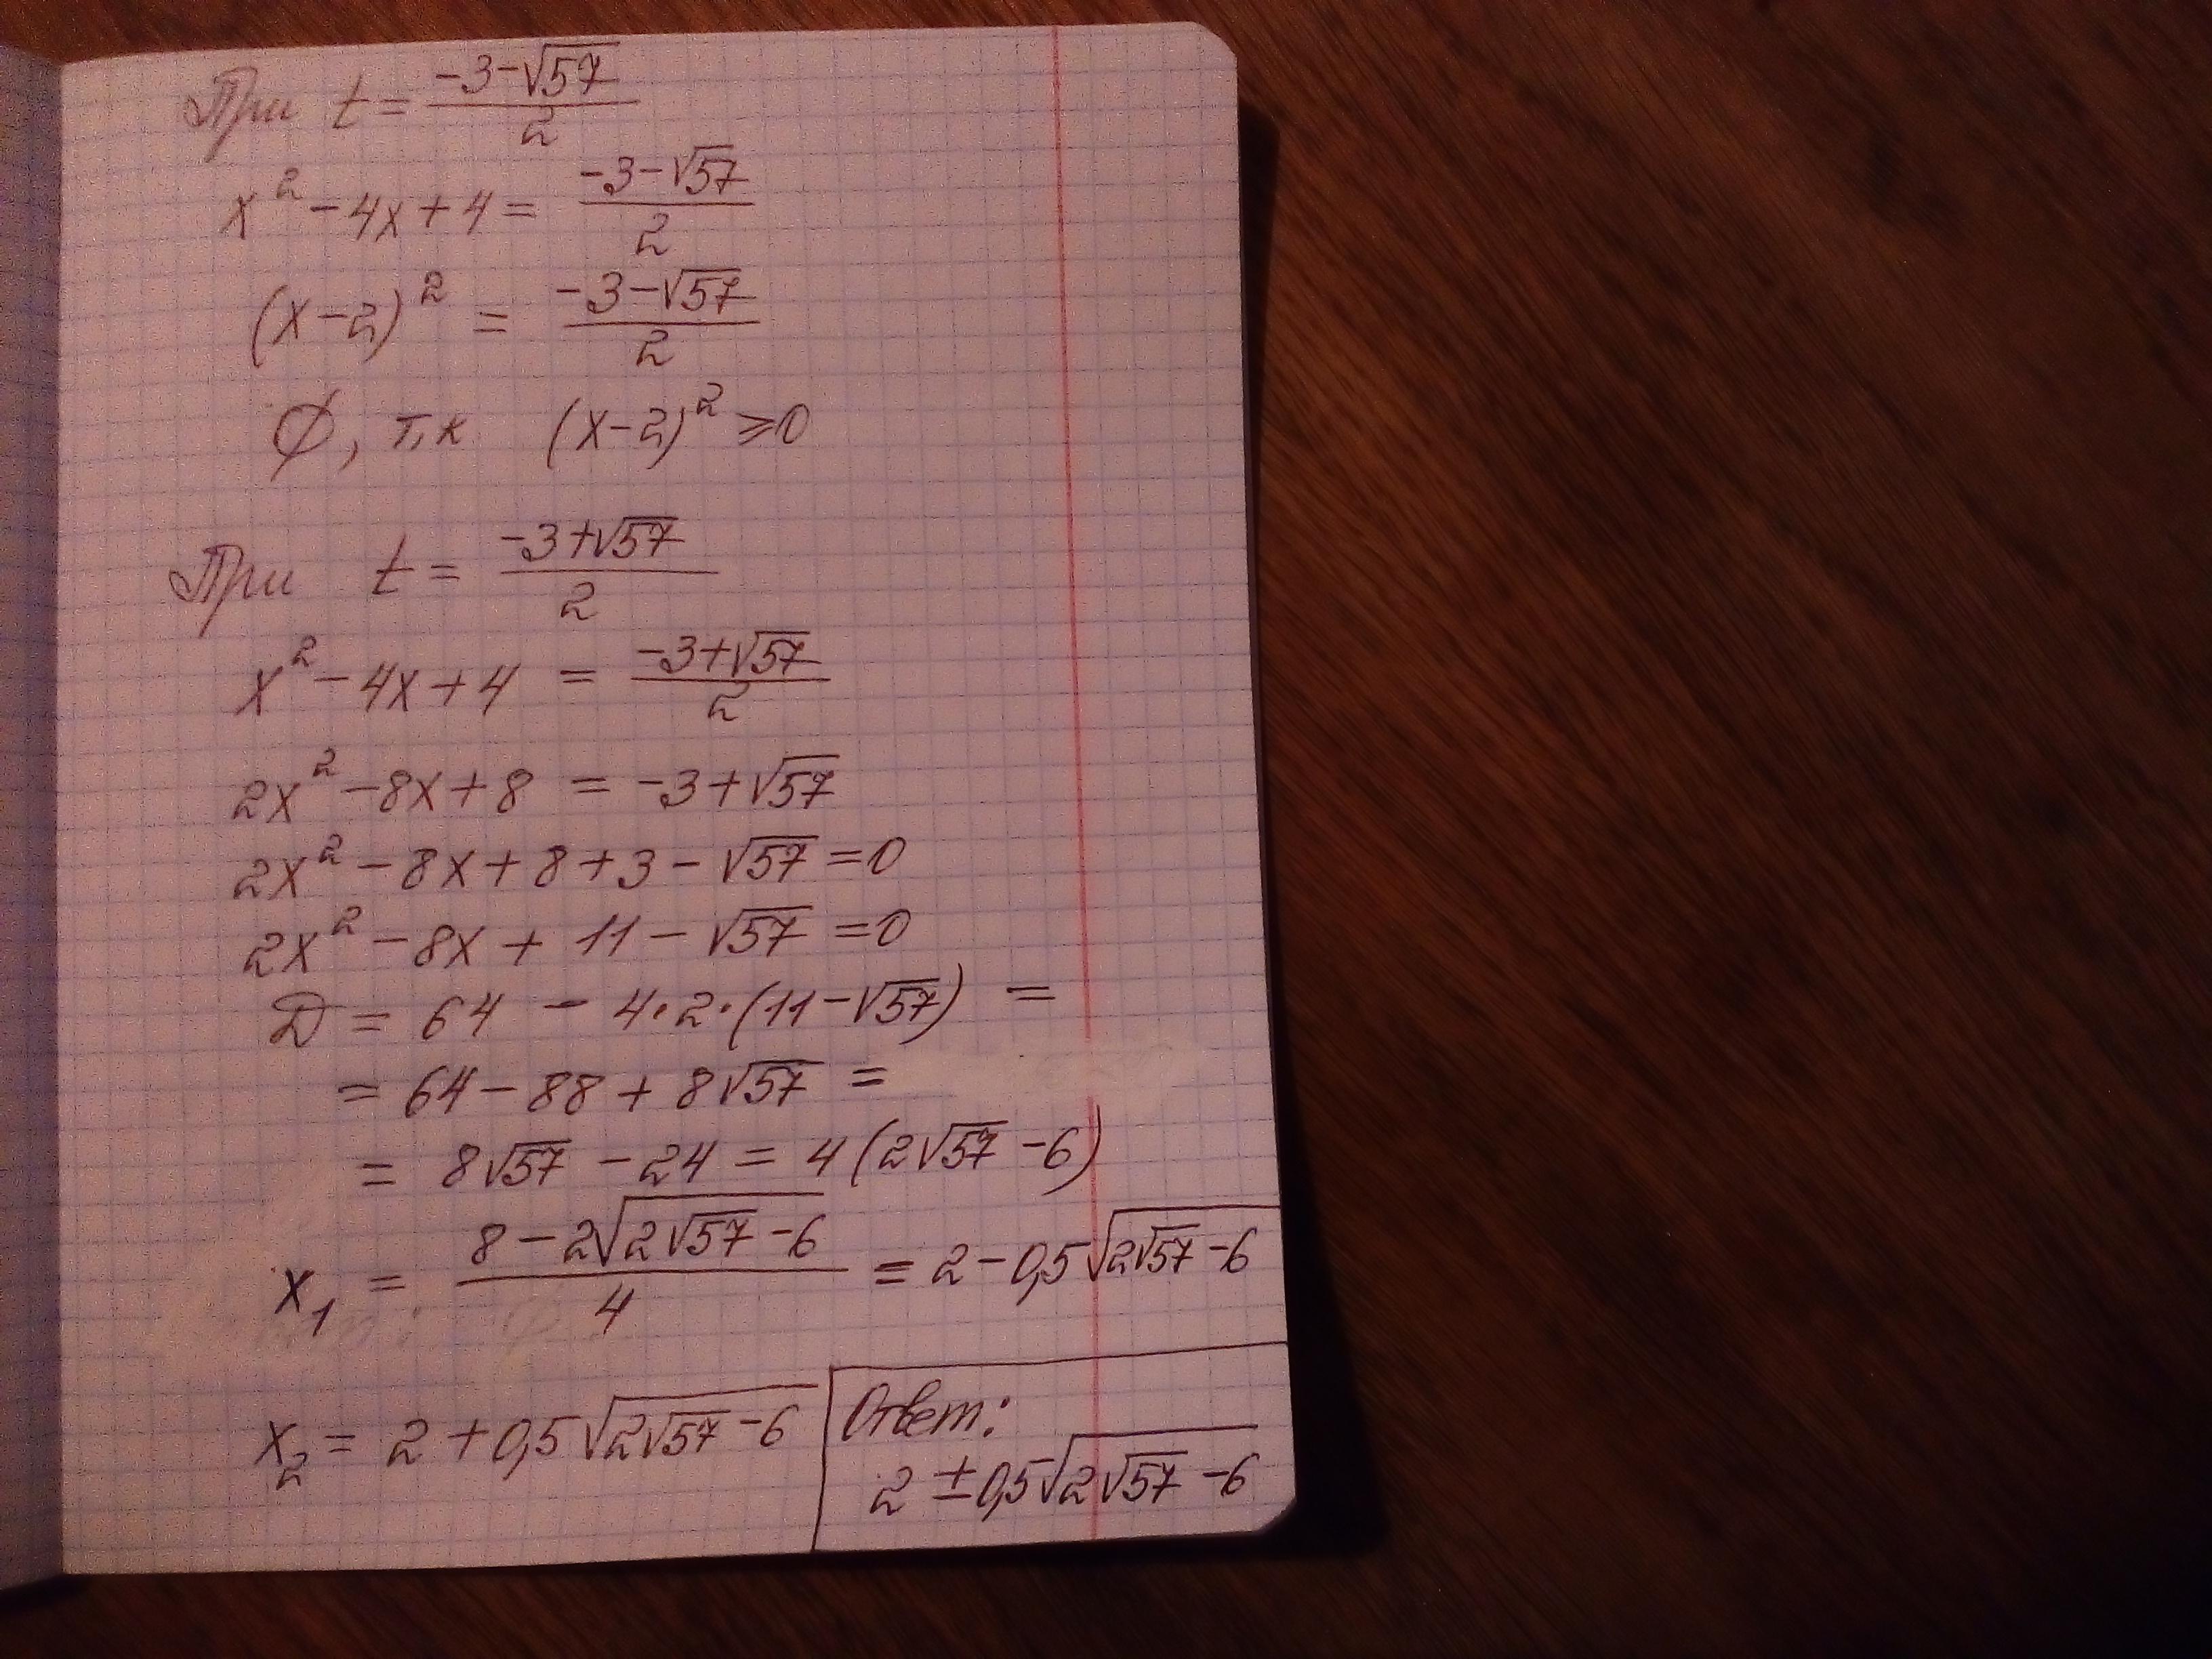 При t = (-3-√57)/2
x² - 4x + 4 = (-3-√57)/2
(x-2)² = (-3-√57)/2
∅, т.к (x-2)² ⩾ 0
При t = (-3+√57)/2
x² - 4x + 4 = (-3+√57)/2
2x² - 8x + 8 = -3 + √57
2x² - 8x + 8 + 3 - √57 = 0
2x² - 8x + 11 - √57 = 0
D = 64 - 4·2·(11-√57) =
= 64 - 88 + 8√57 =
= 8√57 - 24 = 4(2√57 - 6)
x₁ = (8 - 2√(2√57 - 6))/4 = 2 - 0,5√(2√57 - 6)
x₂ = 2 + 0,5√(2√57 - 6)
Ответ:
2 ± 0,5√(2√57 - 6)